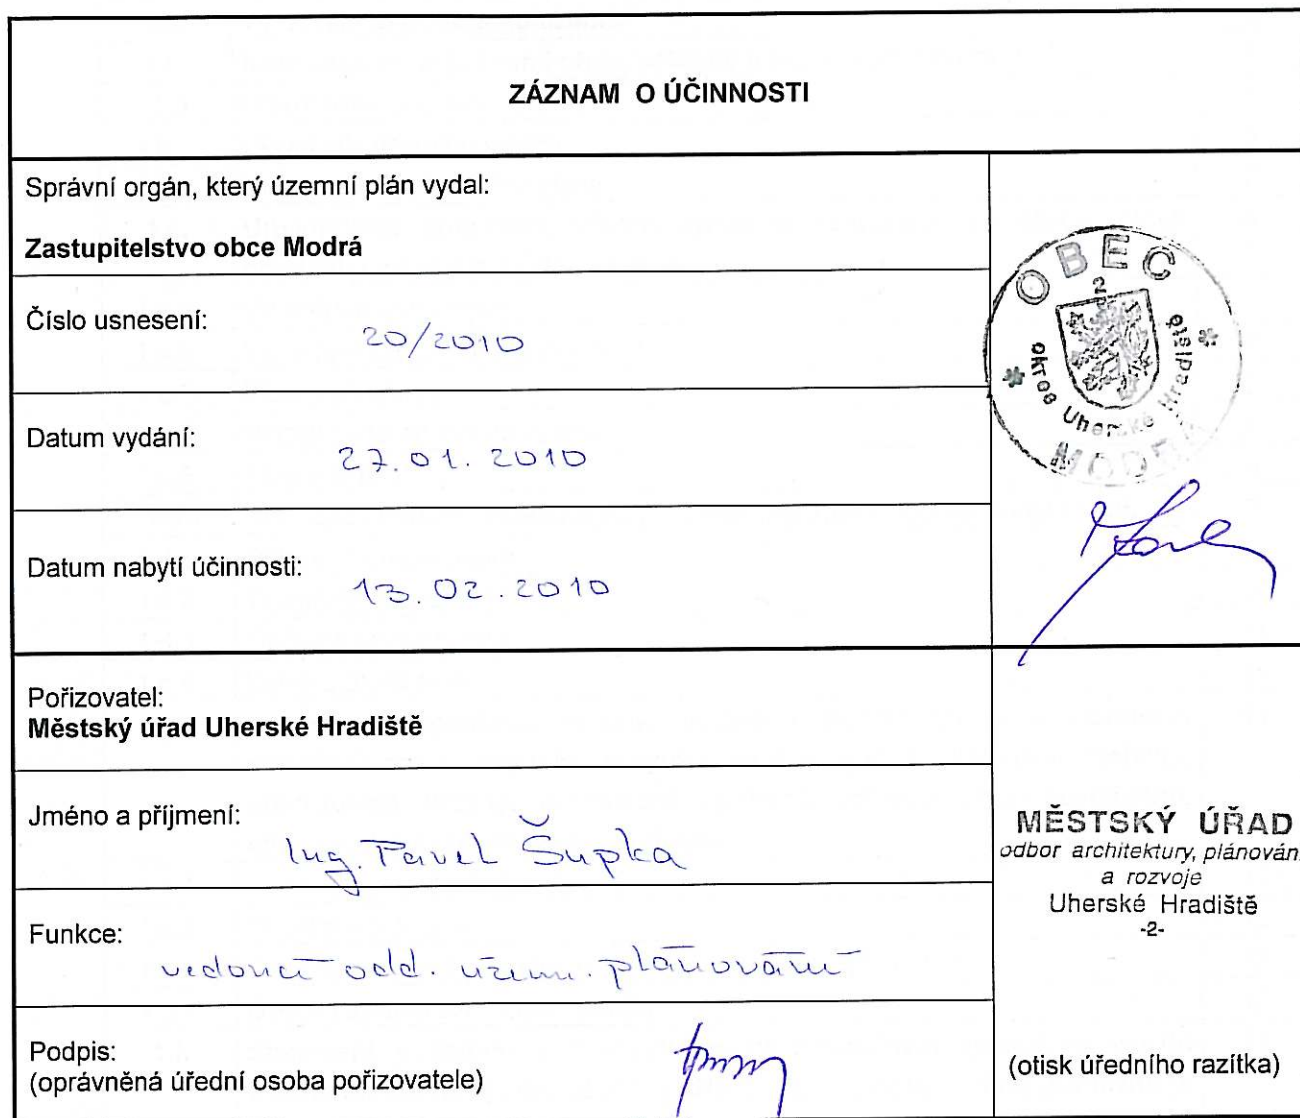 ZÁZNAM O ÚČINNOSTI
Správní orgán, který územní plán vydal:
Zastupitelstvo obce Modrá
Číslo usnesení:
20/2010
Datum vydání:
27.01.2010
Datum nabytí účinnosti:
13.02.2010
OBEC
2
okres Uherské Hradiště
MODRÁ
Pořizovatel:
Městský úřad Uherské Hradiště
Jméno a příjmení:
Ing. Pavel Šupka
Funkce:
vedoucí odd. územ. plánování
Podpis:
(oprávněná úřední osoba pořizovatele)
MĚSTSKÝ ÚŘAD
odbor architektury, plánován
a rozvoje
Uherské Hradiště
-2-
(otisk úředního razítka)